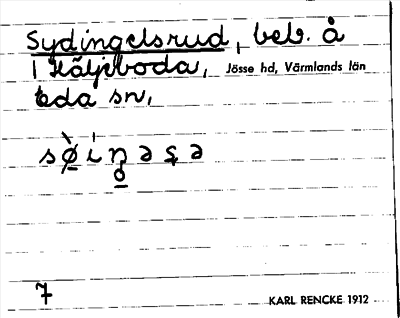 Sydingelsrud, beb. å
Häljeboda, Jösse hd, Värmlands län
Eda sn,
sø̀i̍n̥əʂə
7
KARL RENCKE 1912